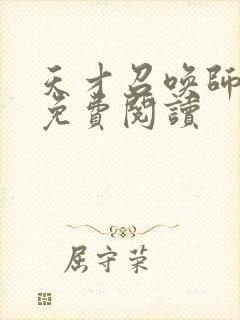 天才召喚師
免費閱讀
屈守荣